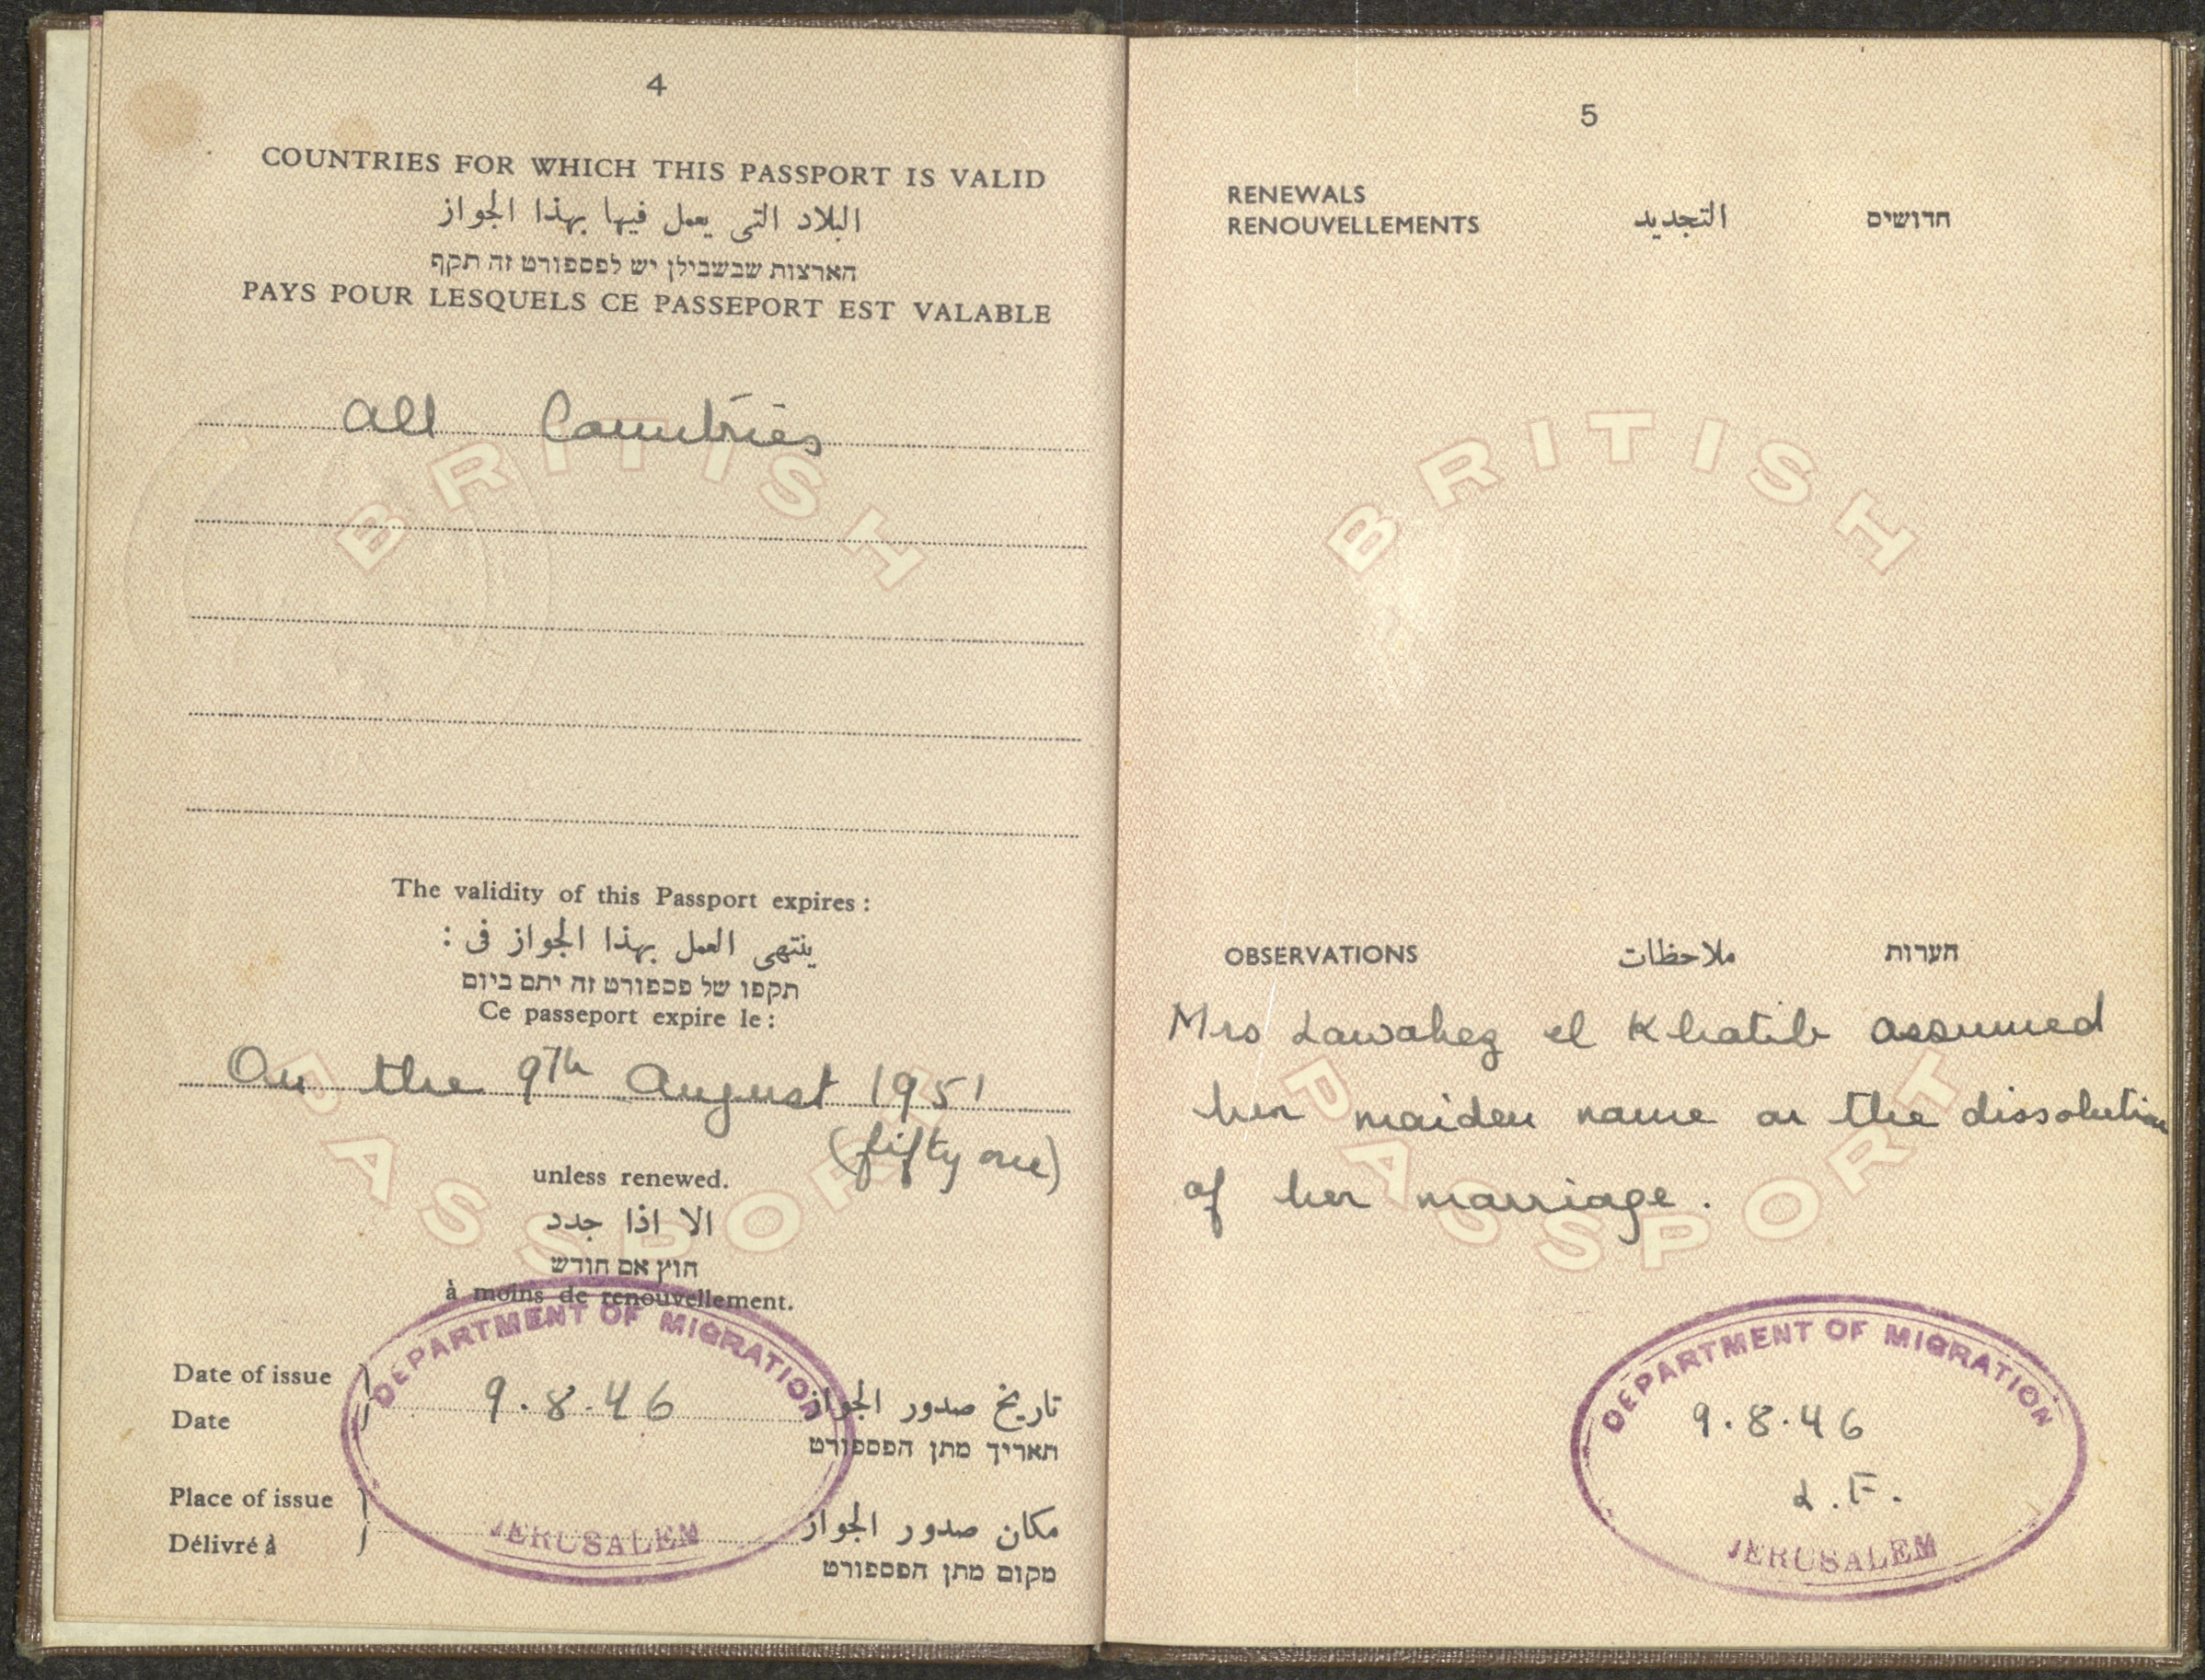 4
COUNTRIES FOR WHICH THIS PASSPORT IS VALID
البلاد التي يعمل فيها بهذا الجواز
הארצות שבשבילן יש לפספורט זה תקף
PAYS POUR LESQUELS CE PASSEPORT EST VALABLE
All Countries
BRITISH
The validity of this Passport expires :
ينتهى العمل بهذا الجواز فى :
תקפו של פספורט זה יתם ביום
Ce passeport expire le :
On the 9th August 1951
(fifty one)
PASSPORT
unless renewed.
الا اذا جدد
חוץ אם חודש
à moins de renouvellement.
DEPARTMENT OF MIGRATION
Date of issue
Date
9.8.46
تاريخ صدور الجواز
תאריך מתן הפספורט
Place of issue
Délivré à
JERUSALEM
مكان صدور الجواز
מקום מתן הפספורט
5
RENEWALS التجديد חדושים
RENOUVELLEMENTS
BRITISH
OBSERVATIONS ملاحظات הערות
Mrs Lawahez el Khatib assumed
her maiden name on the dissolution
of her marriage.
PASSPORT
DEPARTMENT OF MIGRATION
9.8.46
L.F.
JERUSALEM